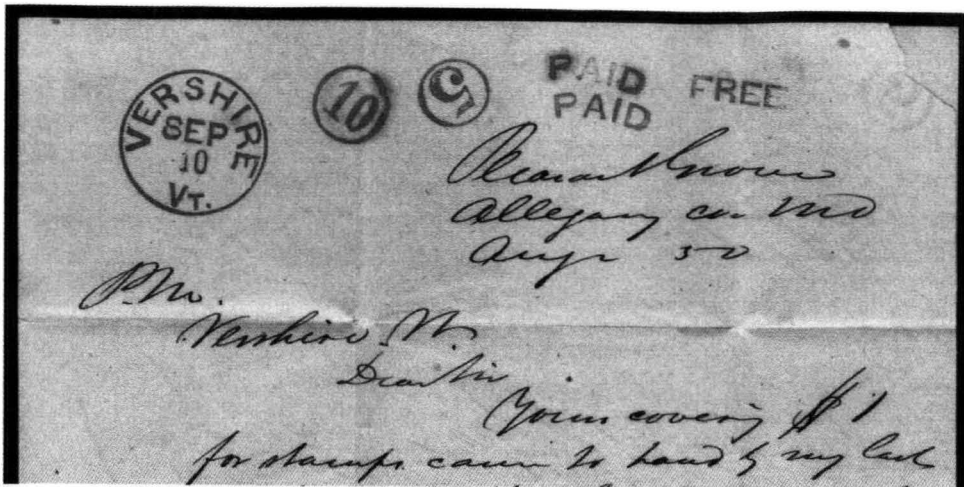 VERSHIRE SEP 10 VT.
10
5
PAID FREE
PAID
Pleasant Grove
Allegany co. Md
Aug 30
P.M.
Vershire Vt.
Dear Sir
Yours covering $1
for stamps came to hand by my last